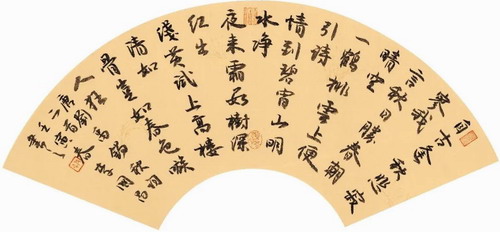 自古逢秋悲寂
寥我
言秋日勝春朝
晴空
一鶴排雲上便
引詩
情到碧霄山明
水淨
夜来霜数樹深
紅出
淺黄試上高樓
清如
骨豈如春色嗾
人狂
唐劉禹錫秋詞
二首
壬寅